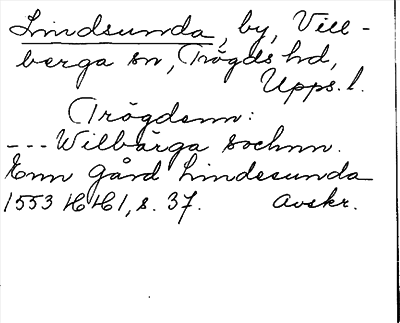 Lindsunda, by, Vill-
berga sn, Trögds hd,
Upps. l.
Trögdenn:
--- Wilbärga sochnn.
Enn gård Lindesunda
1553 HH1, s. 37. Avskr.